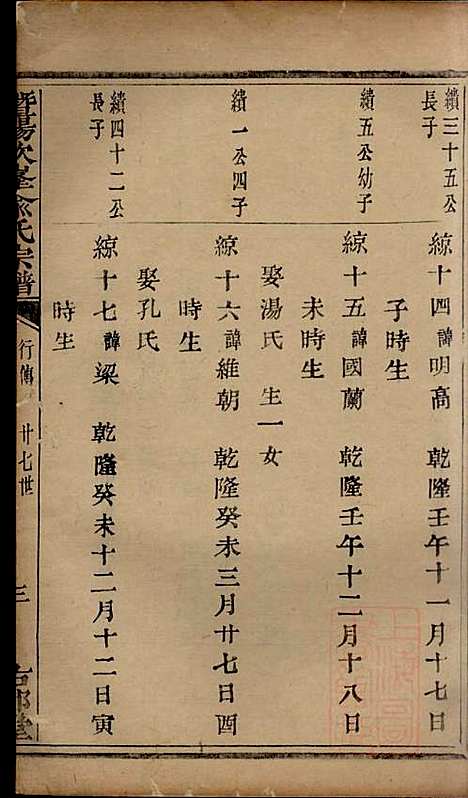 績三十五公
長子
綡十四諱明高　乾隆壬午十一月十七日
子時生
績五公幼子
綡十五諱國蘭　乾隆壬午十二月十八日
未時生
娶湯氏　生一女
績一公四子
綡十六諱維朝　乾隆癸未三月廿七日酉
時生
娶孔氏
績四十二公
長子
綡十七諱梁　乾隆癸未十二月十二日寅
時生
暨陽次峯俞氏宗譜
行傳　廿七世
三